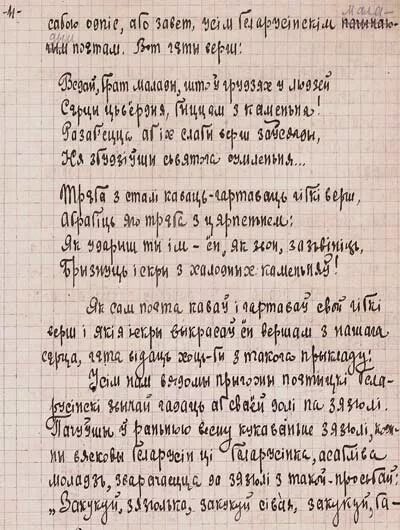 -11-
сабою одпіс, або завет, усім беларусінскім пачінаю- мала-
чим дим поэтам. Вот гэты верш:
Ведай, брат малады, што ў грудзях у людзей
Сэрцы цьвёрдыя, быццам з каменьня!
Разаб'ецца аб іх слабы верш заўсягды,
Ня збудзіўшы сьвятога сумленьня...
Трэба з сталі каваць-гартаваць гібкі верш,
Абрабіць яго трэба з цярпеньнем:
Як ударыш ты ім – ён, як звон, зазьвініць,
Брызнуць іскры з халодных каменьняў!
Як сам поэта каваў і гартаваў свой гібкі
верш і якія іскры выкрасаў ён вершам з нашага
сэрца, гэта відаць хоць-бы з такога прыкладу:
Усім нам вядомы прыгожы поэтыцкі бела-
русінскі звычай гадаць аб сваёй долі па зязюлі.
Пачуўшы ў раньнюю весну кукаваньне зязюлі, кож-
ны вясковы беларусін ці беларусінка, асабліва
моладзь, зварачаецца да зязюлі з такой просьбай:
„Закукуй, зязюлька, закукуй сівая, закукуй, га-